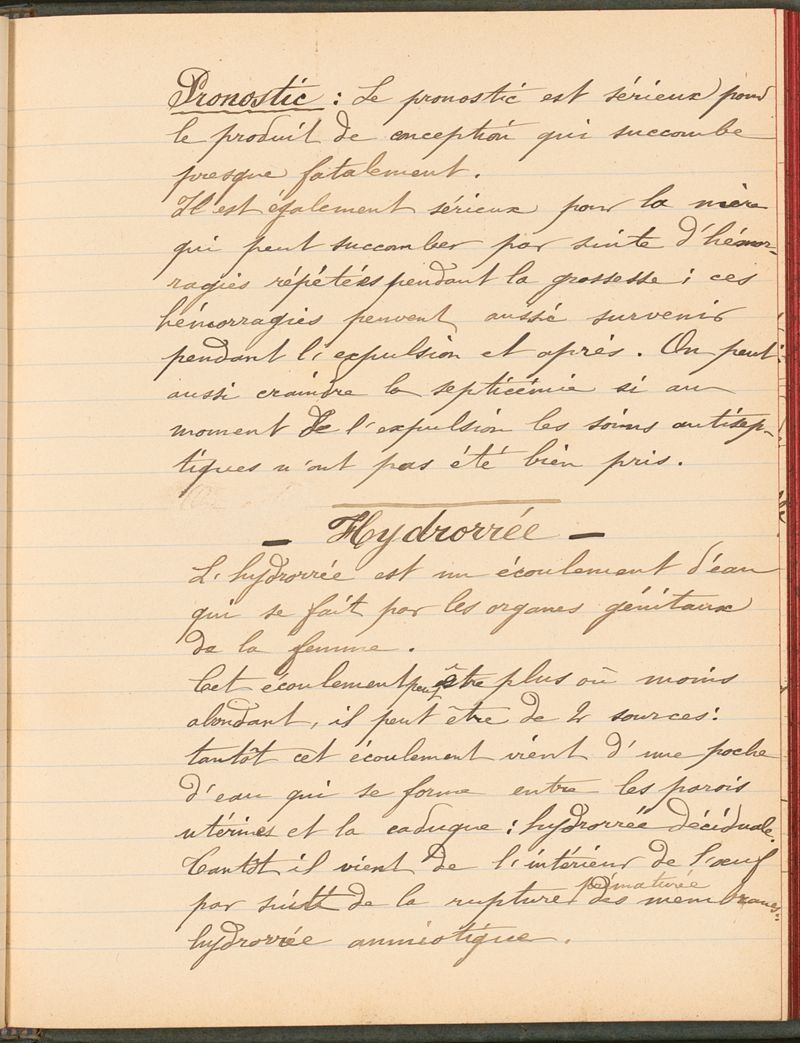 Pronostic : Le pronostic est sérieux pour
le produit de conception qui succombe
presque fatalement.
Il est également sérieux pour la mère
qui peut succomber par suite d'hémor-
ragies répétées pendant la grossesse ; ces
hémorragies peuvent aussi survenir
pendant l'expulsion et après. On peut
aussi craindre la septicémie si au
moment de l'expulsion les soins antisep-
tiques n'ont pas été bien pris.
- Hydrorrée -
L'hydrorrée est un écoulement d'eau
qui se fait par les organes génitaux
de la femme.
Cet écoulement peut être plus où moins
abondant, il peut être de 2 sources :
tantôt cet écoulement vient d'une poche
d'eau qui se forme entre les parois
utérines et la caduque : hydrorrée déciduale.
Tantôt il vient de l'intérieur de l'œuf
par suite de la rupture prématurée des membranes :
hydrorrée amniotique.